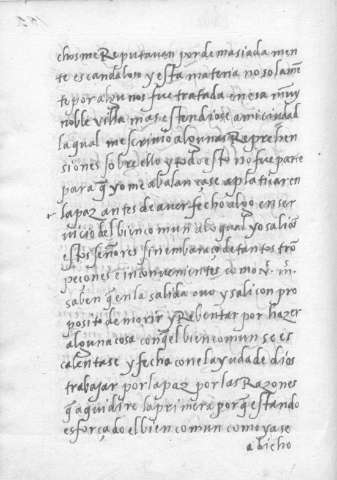 chos me Reputavan por demasiada men
te escandalon y esta materia no solam̃
te por algunos fue tratada en esa muy
noble villa mas estendiose a mi ciudad
la qual me scrivio algunas Reprehen
siones sobre ello y todo esto no fue parte
para q̃ yo me abalançase a platicar en
la paz antes de aver fecho algo en ser
uicio del bien comun alo qual yo sali cõ
estos señores sin embargo de tantos trõ
peçones e inconvenientes como v. m.
saben q̃ en la salida ovo y sali con pro
posito de morir y Rebentar por hazer
alguna cosa con q̃ el bien comun se es
calentase y fecho con el ayuda de dios
trabajar por la paz por las Razones
q̃ aqui dire la primera porq̃ estando
esforçado el bien comun como ya se
a bicho